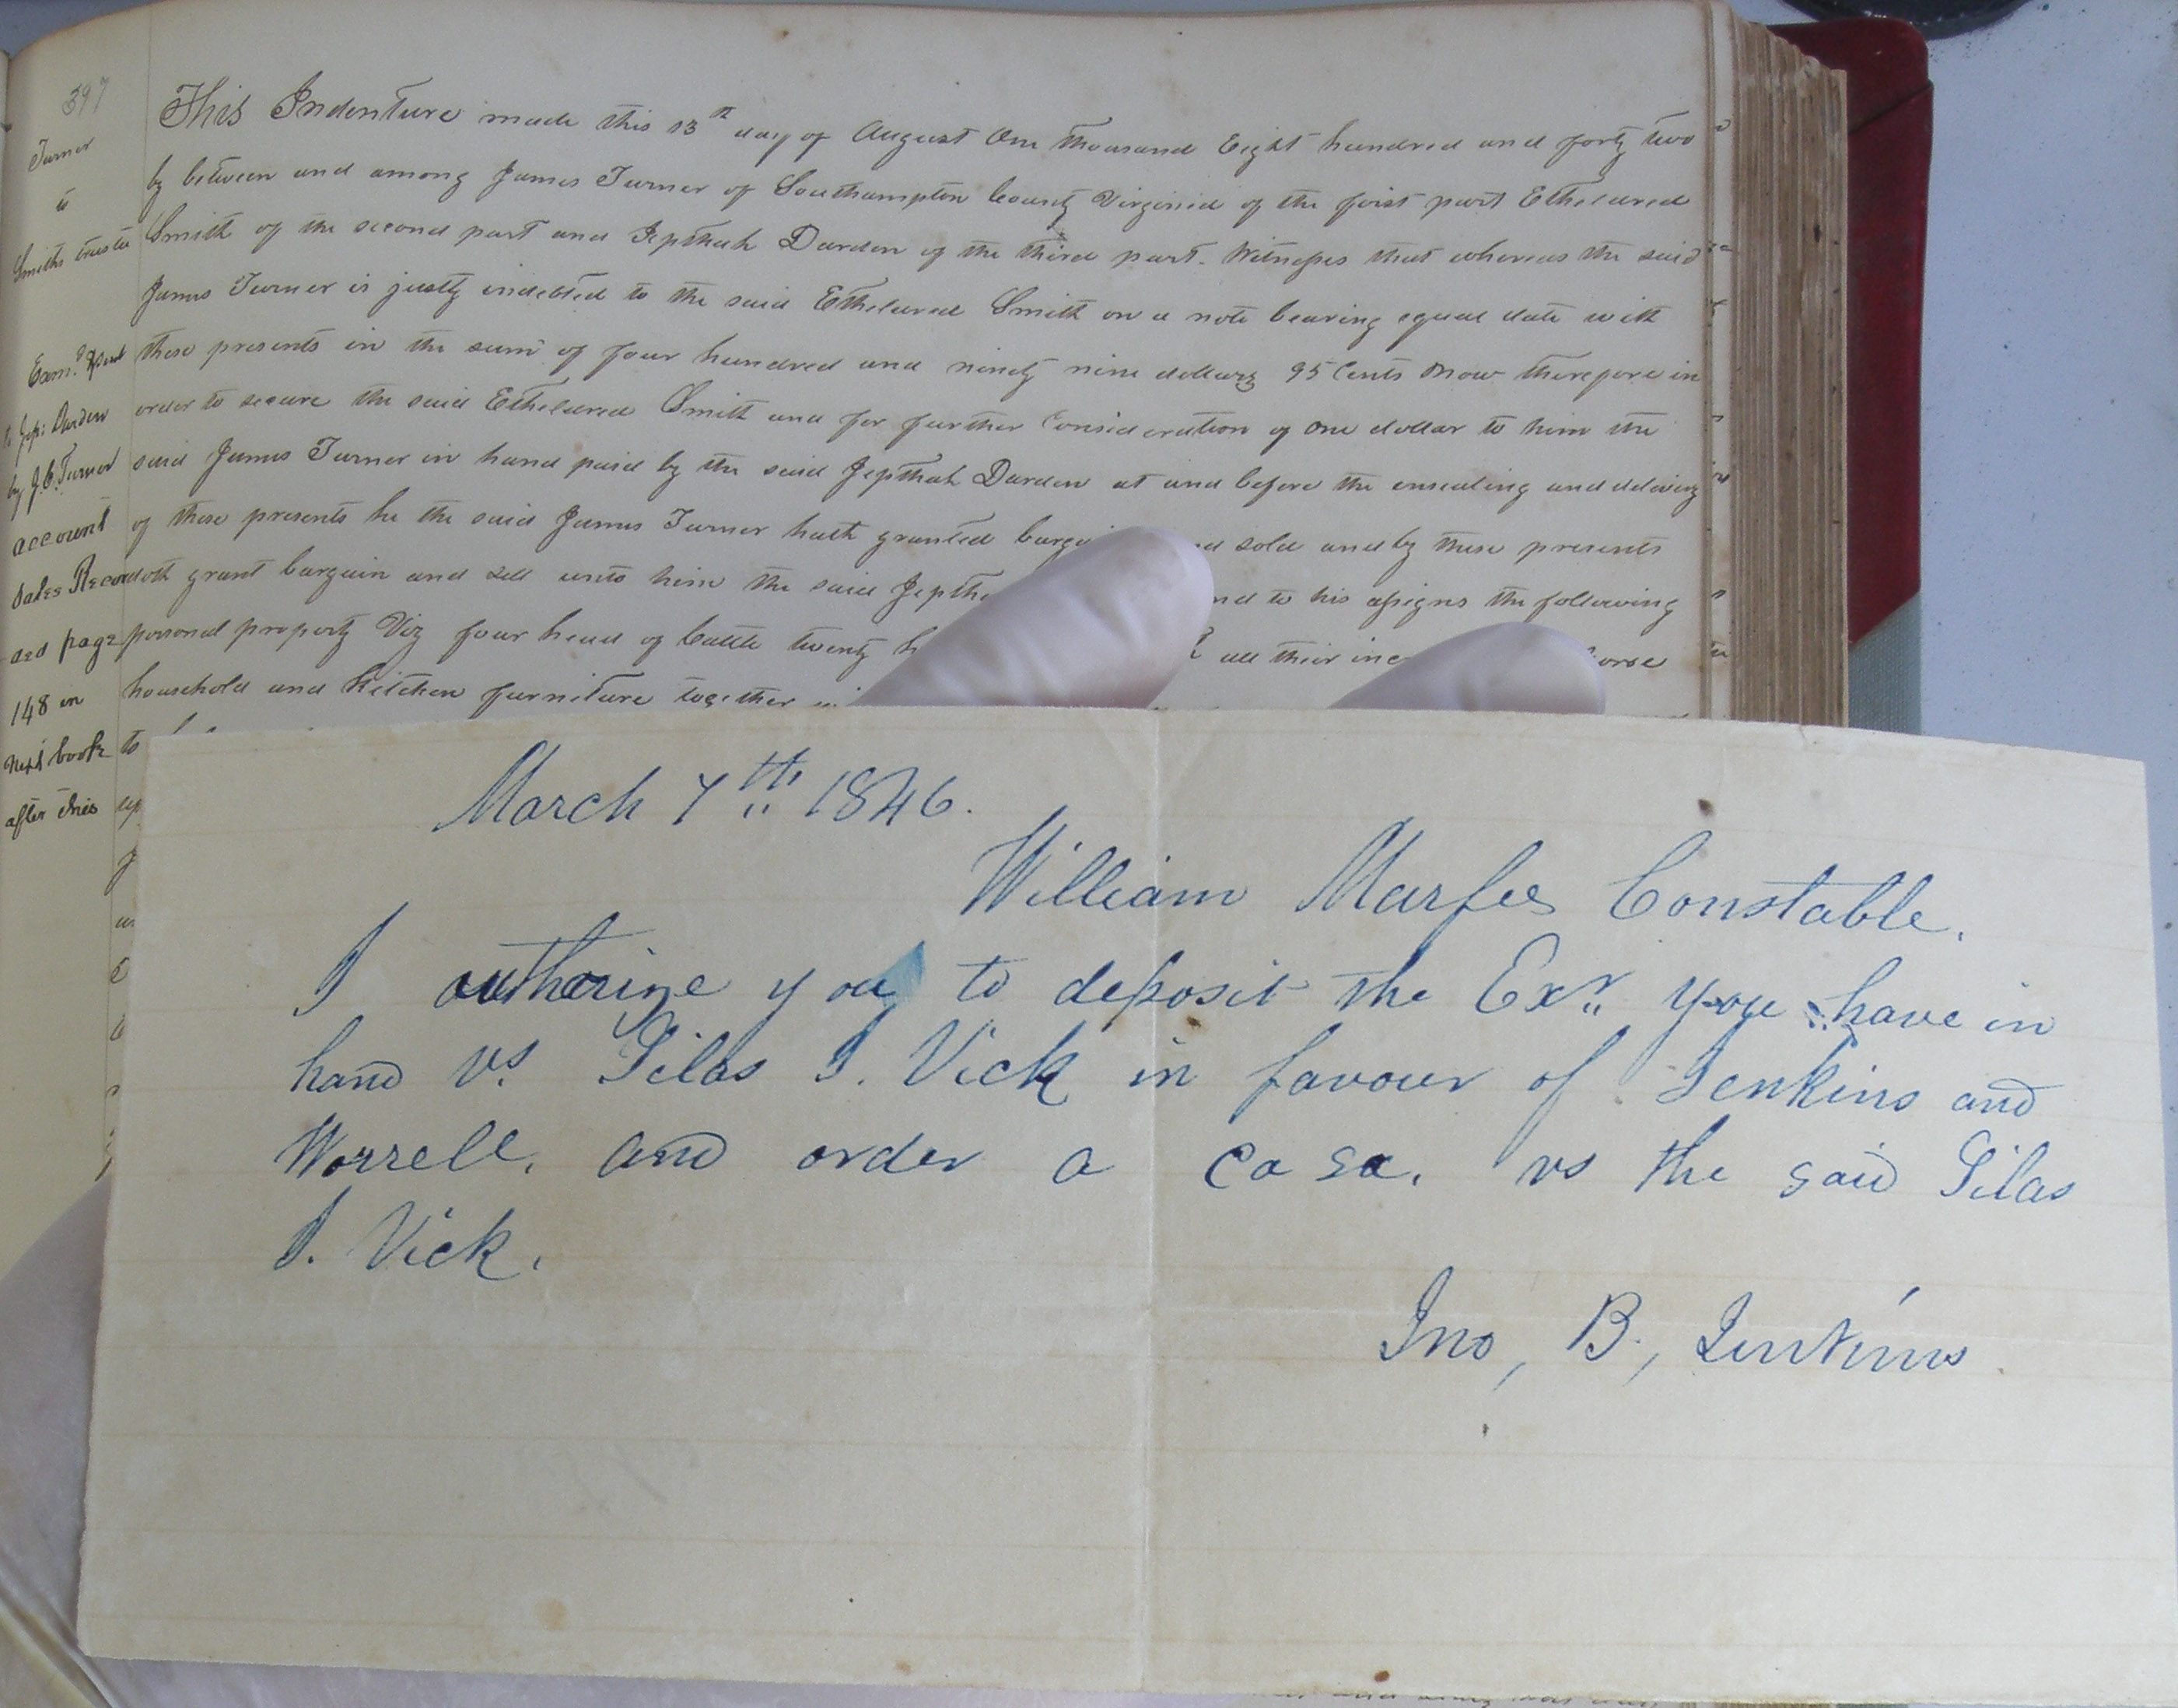 397
This Indenture made this 13th day of August One thousand Eight hundred and forty two
by between and among James Turner of Southampton County Virginia of the first part Etheldred
Smith of the second part and Jepthah Darden of the third part. Witnesses that whereas the said
James Turner is justly indebted to the said Etheldred Smith on a note bearing equal date with
these presents in the sum of four hundred and ninety nine dollars 95 Cents Now therefore in
order to secure the said Etheldred Smith and for further Consideration of one dollar to him the
said James Turner in hand paid by the said Jepthah Darden at and before the ensealing and delivery
of these presents he the said James Turner hath granted sold and by these presents
doth grant bargain and sell unto him the said to his assigns the following
personal property Viz four head of Cattle twenty all their
household and Kitchen furniture together
to
Turner
to
Smiths trustee
Jep: Darden
by J.C. Turner
account
Sales Record
page
148 in
Next book
after this
March 7th 1846.
William Marfee Constable.
I authorize you to deposit the Exr. you have in
hand vs. Silas J. Vick in favour of Jenkins and
Worrell. and order a ca sa. vs the said Silas
J. Vick.
Jno, B., Jenkins